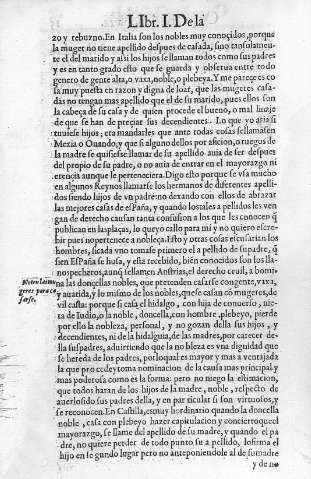 LIbr. I. De la
zo y rebuzno. En Italia son los nobles muy conoçidos, porque
la muger no tiene apellido despues de casada, sino tansolamente
el del marido y assi los hijos se llaman todos como sus padres
y es en tanto grado esto que se guarda y obserua entre todo
genero de gente alta, o vaxa, noble, o plebeya. Y me pareçe es co
sa muy puesta en razon y digna de loar, que las mugeres casa-
das no tengan mas apellido que el de su marido, pues ellos son
la cabeça de su casa y de quien proçede el bueno, o mal linaje
de que se han de preçiar sus decendientes. Lo que yo aria si
tuuiese hijos; era mandarles que ante todas cosas se llamasen
Mexia o Ouando; y que si alguno dellos por afiçion, o ruegos de
la madre se quisiese llamar de su apellido auia de ser despues
del propio de su padre, o no auia de entrar en el mayorazgo ni
erençia aunque le perteneçiera. Digo esto porque se via mucho
en algunos Reynos llamarse los hermanos de diferentes apelli-
dos siendo hijos de vn padre: no dexando con ellos de abrazar
las mejores casas de esPaña, y quando los tales a pellidos les ven
gan de derecho causan tanta confusion a los que les conoçen q̃
publican en las plaças, lo que yo callo para mi y no quiero escre-
bir pues no pertenece a nobleça. Esto y otras cosas etimaritan los
hombres, sicada vno tomase primero el a pellido de su padre, q̃
sien EsPaña se husa, y está recebido, bien conocidos son los lla-
nos pecheros, aunq̃ se llamen Austrias, el derecho ceuil, a bomi-
Nobre las mu
geres para ca
sarse.
na las donçellas nobles, que pretenden casarse con gente, vaxa,
y auatida, y lo mismo de los nobles, que se casan cō mugeres, de
vil casta: porque si casa el hidalgo, con hija de conuerso, nie-
ta de Iudio, o la noble, donçella, con hombre, plebeyo, pierde
por ello la nobleza, personal, y no gozan della sus hijos, y
decendientes, ni de la hidalguia, de las madres, por carecer de-
lla sus padres, aduirtiendo que la no bleza es vna dignidad que
se hereda de los padres, por lo qual es mayor y mas a ventajada
la que pro cede y toma nominacion de la causa mas principal y
mas poderosa como es la forma: pero no niego la estimacion,
que todos haran de los hijos de la madre, noble, respecto de
auerlo sido sus padres della, y en par ticular si son virtuosos, y
se reconocen. En Castilla, es muy hordinario quando la donçella
noble, casa con plebeyo hazer capitulacion y concierto que el
mayorazgo, se llame del apellido de su madre, y quando el pa
dre, no quiere perder de todo punto su a pellido, lo firma el
hijo en se gundo lugar pero no anteponiendole al de su madre
y de no